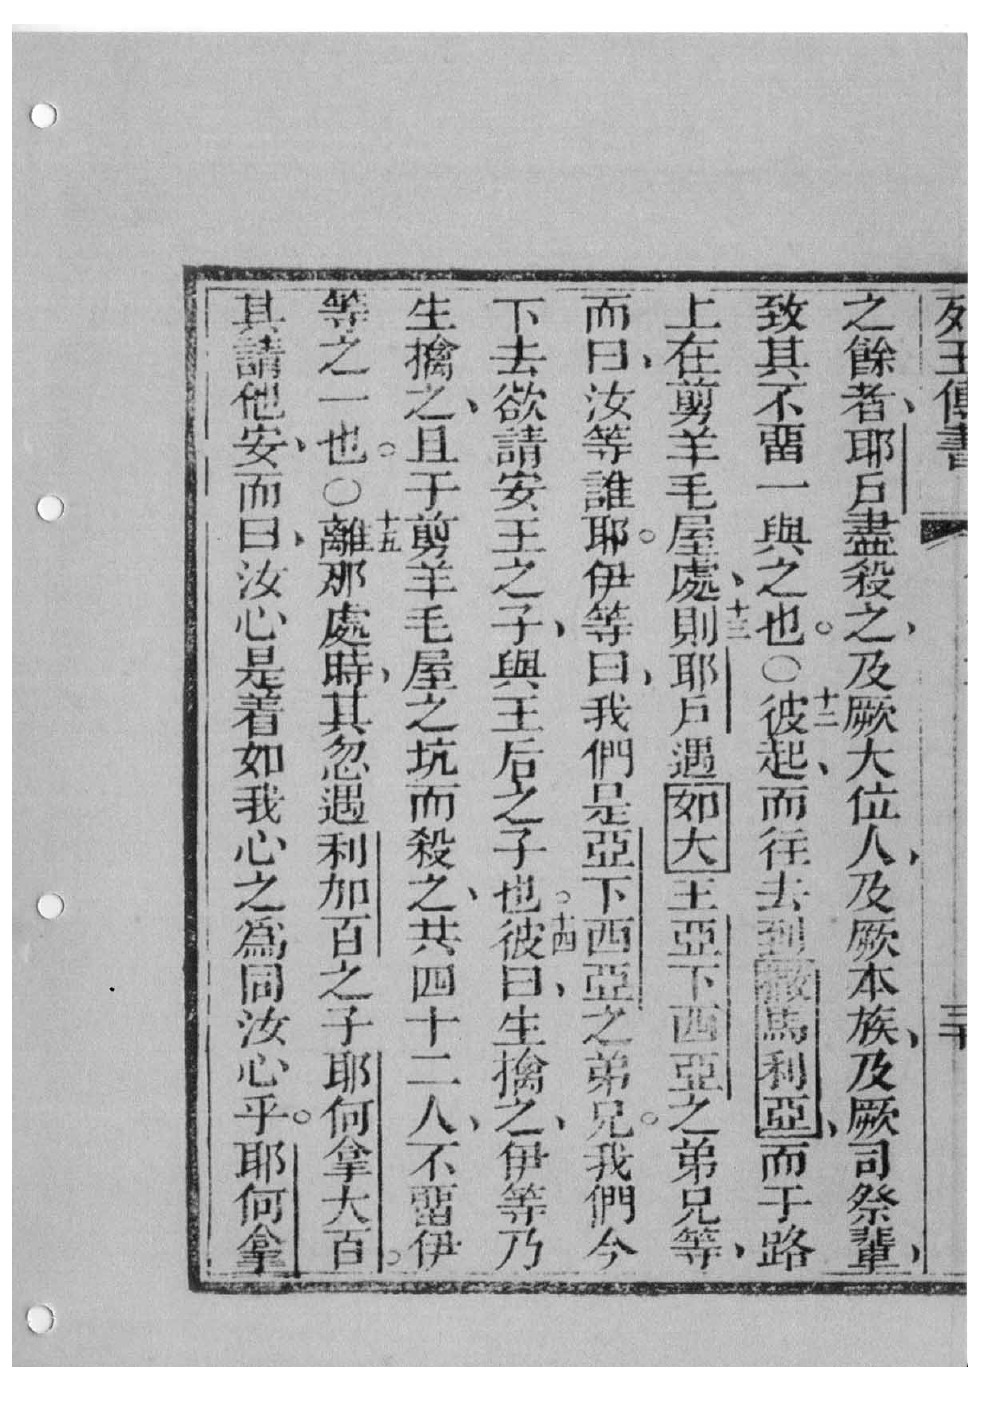 列王傳書 三十
之餘者、耶戶盡殺之、及厥大位人、及厥本族、及厥司祭輩、
致其不留一與之也。○十二彼起、而往去到撒馬利亞、而于路
上在剪羊毛屋處、十三則耶戶遇如大王亞下西亞之弟兄等、
而曰、汝等誰耶。伊等曰、我們是亞下西亞之弟兄。我們今
下去欲請安王之子、與王后之子也。十四彼曰、生擒之、伊等乃
生擒之、且于剪羊毛屋之坑而殺之、共四十二人、不留伊
等之一也。○十五離那處時、其忽遇利加百之子耶何拿大百。
其請他安、而曰、汝心是着如我心之爲同汝心乎。耶何拿